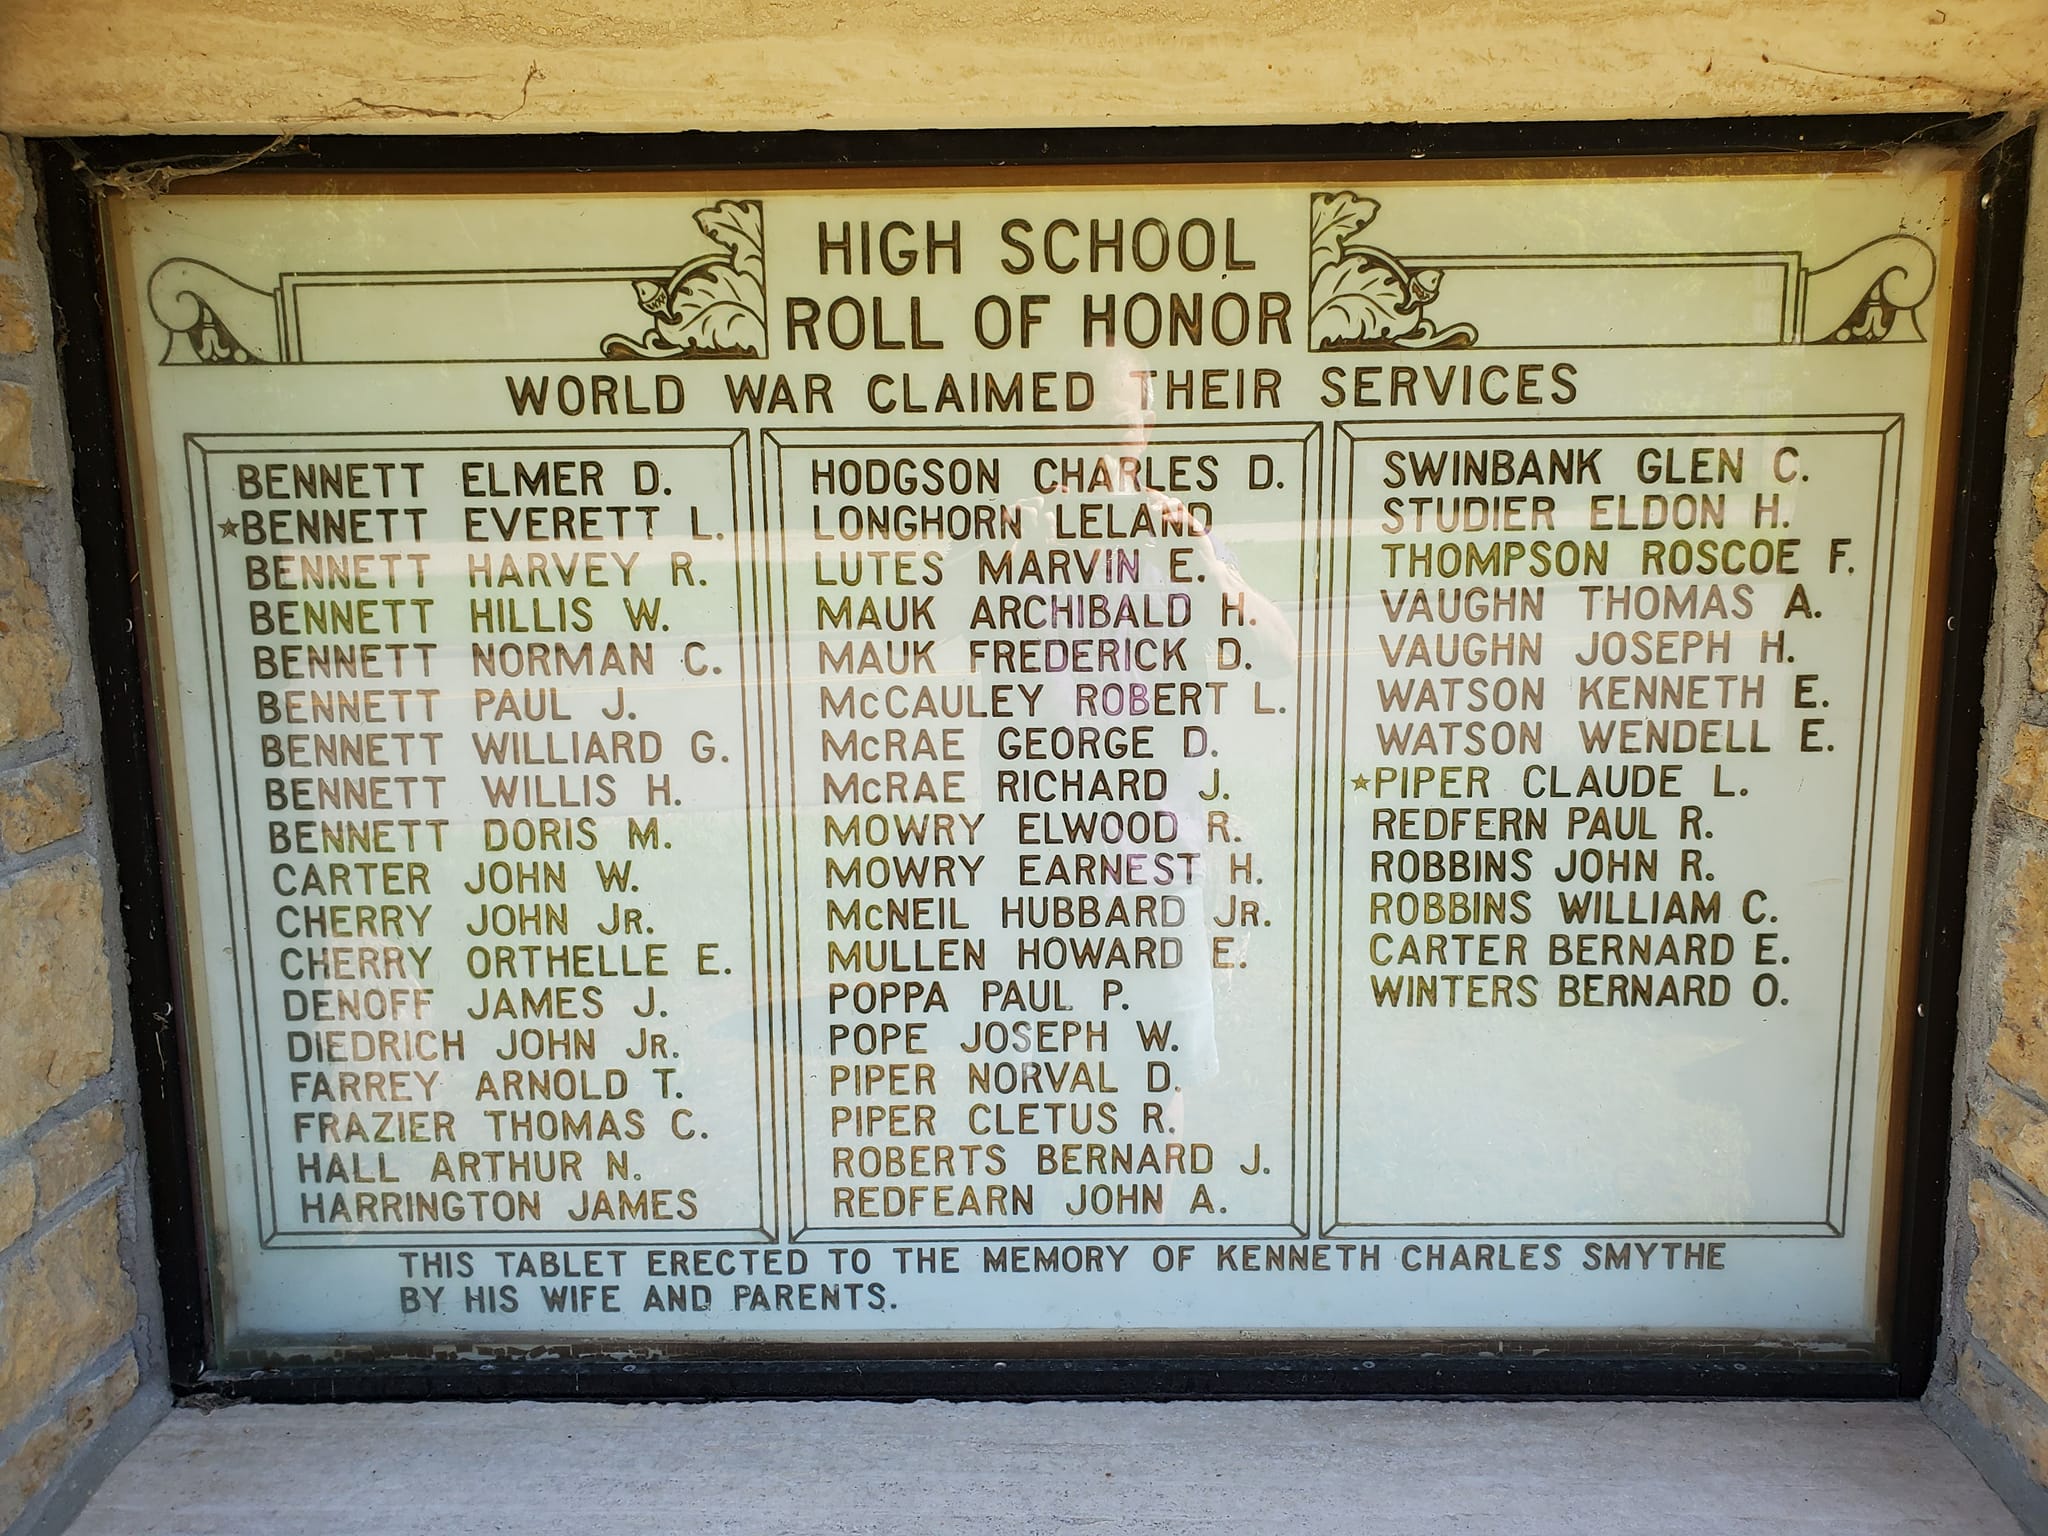 HIGH SCHOOL
ROLL OF HONOR
WORLD WAR CLAIMED THEIR SERVICES
BENNETT ELMER D.
★BENNETT EVERETT L.
BENNETT HARVEY R.
BENNETT HILLIS W.
BENNETT NORMAN C.
BENNETT PAUL J.
BENNETT WILLIARD G.
BENNETT WILLIS H.
BENNETT DORIS M.
CARTER JOHN W.
CHERRY JOHN JR.
CHERRY ORTHELLE E.
DENOFF JAMES J.
DIEDRICH JOHN JR.
FARREY ARNOLD T.
FRAZIER THOMAS C.
HALL ARTHUR N.
HARRINGTON JAMES
HODGSON CHARLES D.
LONGHORN LELAND
LUTES MARVIN E.
MAUK ARCHIBALD H.
MAUK FREDERICK D.
McCAULEY ROBERT L.
McRAE GEORGE D.
McRAE RICHARD J.
MOWRY ELWOOD R.
MOWRY EARNEST H.
McNEIL HUBBARD JR.
MULLEN HOWARD E.
POPPA PAUL P.
POPE JOSEPH W.
PIPER NORVAL D.
PIPER CLETUS R.
ROBERTS BERNARD J.
REDFEARN JOHN A.
SWINBANK GLEN C.
STUDIER ELDON H.
THOMPSON ROSCOE F.
VAUGHN THOMAS A.
VAUGHN JOSEPH H.
WATSON KENNETH E.
WATSON WENDELL E.
★PIPER CLAUDE L.
REDFERN PAUL R.
ROBBINS JOHN R.
ROBBINS WILLIAM C.
CARTER BERNARD E.
WINTERS BERNARD O.
THIS TABLET ERECTED TO THE MEMORY OF KENNETH CHARLES SMYTHE
BY HIS WIFE AND PARENTS.